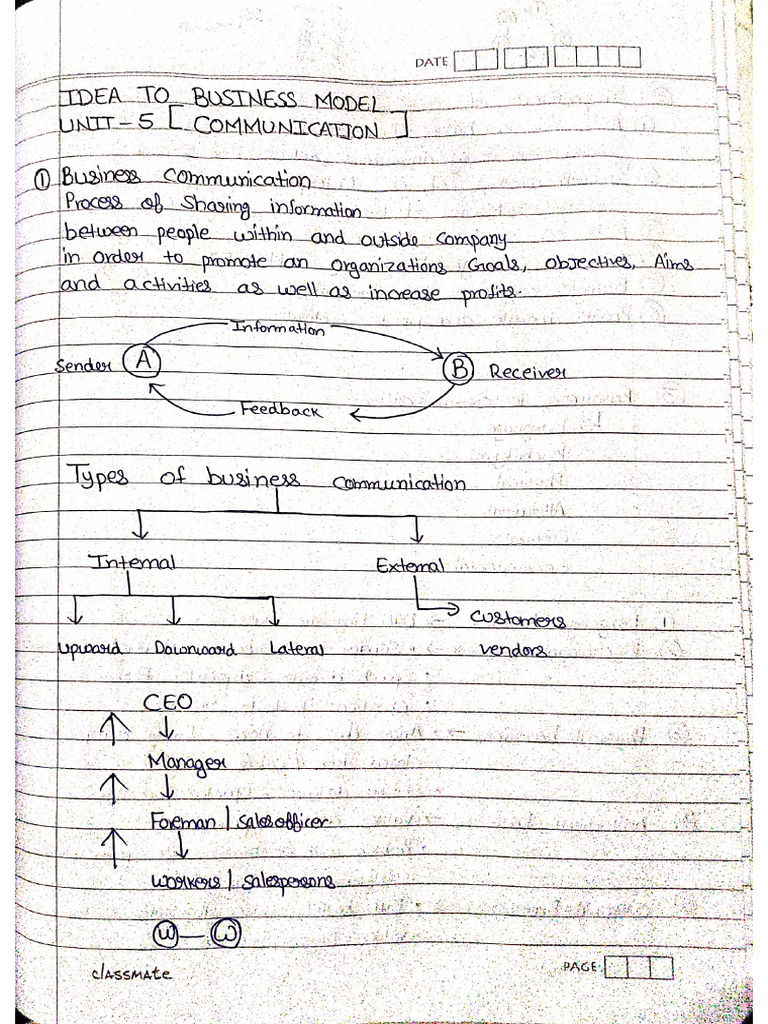 DATE
IDEA TO BUSINESS MODEL
UNIT-5 [ COMMUNICATION ]
① Business Communication
Process of Sharing information
between people within and outside company
in order to promote an organizations Goals, objectives, Aims
and activities as well as increase profits.
Information
Sender A B Receiver
Feedback
Types of business communication
Internal External
customers
upward Downward Lateral vendors
CEO
Manager
Foreman | salesofficer
workers | salespersons
W — W
classmate PAGE